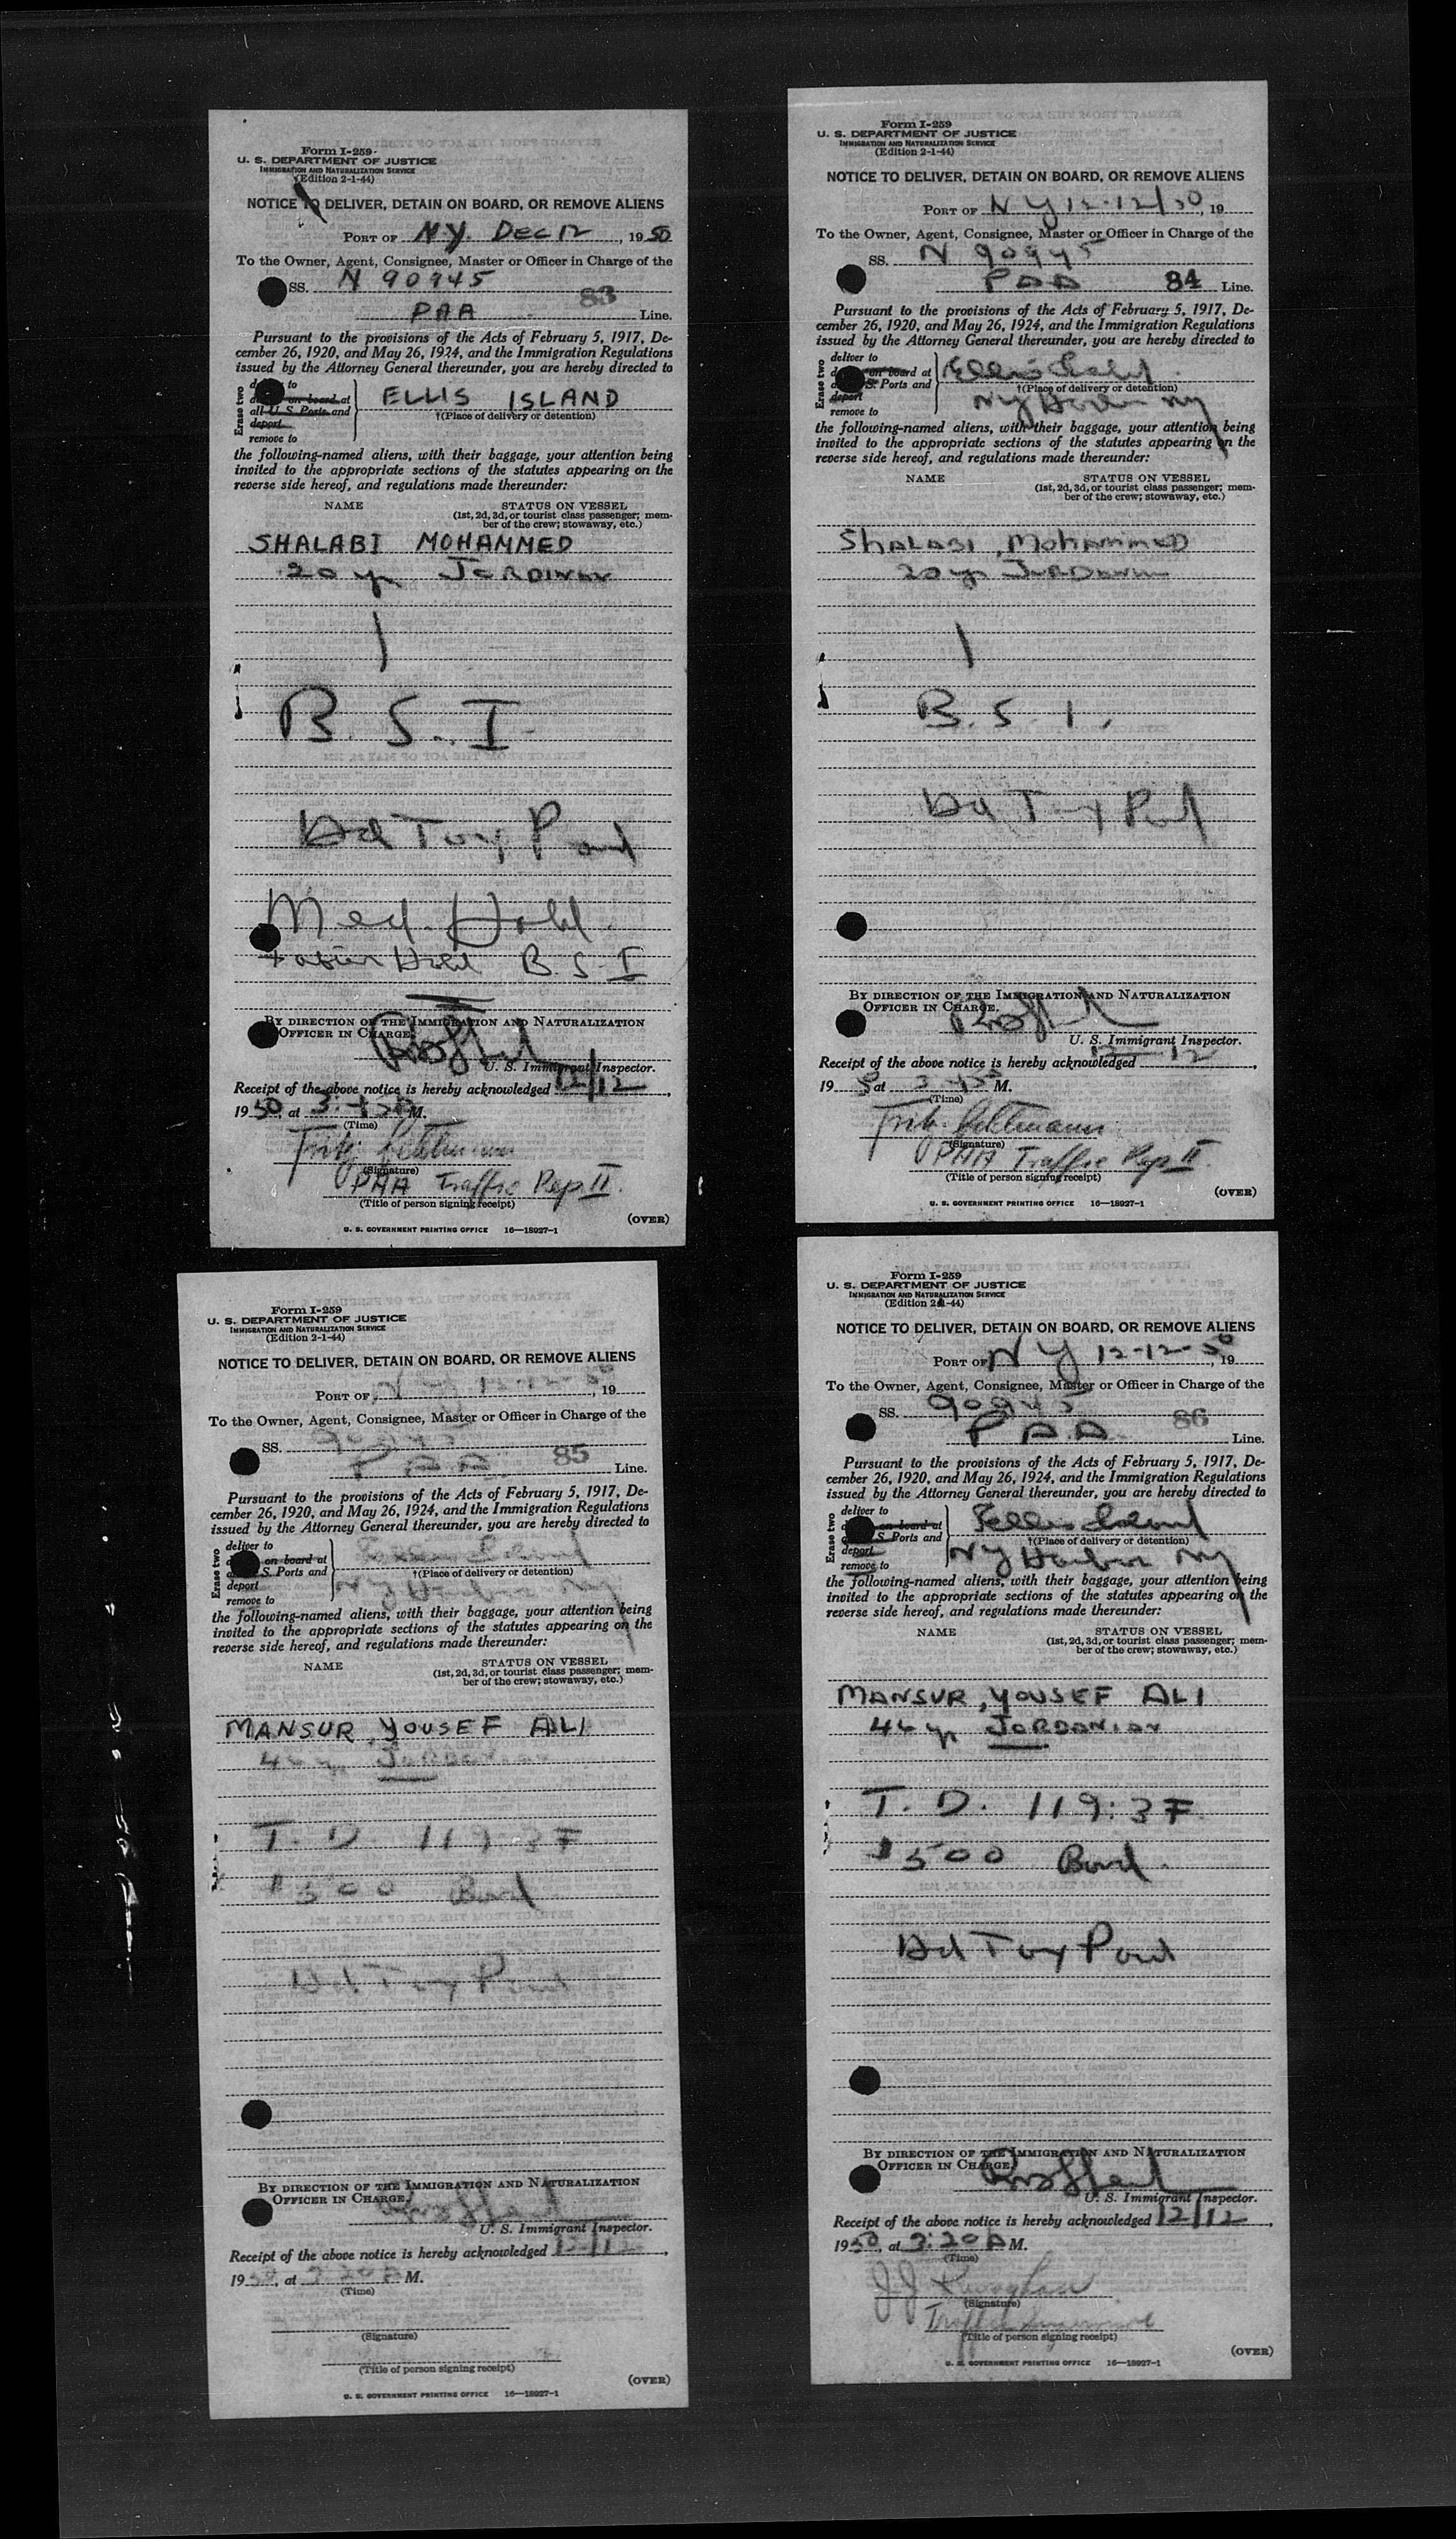 Form I-259
U. S. DEPARTMENT OF JUSTICE
IMMIGRATION AND NATURALIZATION SERVICE
(Edition 2-1-44)
NOTICE TO DELIVER, DETAIN ON BOARD, OR REMOVE ALIENS
PORT OF N.Y. DEC 12, 1950
To the Owner, Agent, Consignee, Master or Officer in Charge of the
SS. N 90945
PAA 83 Line.
Pursuant to the provisions of the Acts of February 5, 1917, De-
cember 26, 1920, and May 26, 1924, and the Immigration Regulations
issued by the Attorney General thereunder, you are hereby directed to
Erase two
to
on board at
all U. S. Ports and
deport
remove to
ELLIS ISLAND
†(Place of delivery or detention)
the following-named aliens, with their baggage, your attention being
invited to the appropriate sections of the statutes appearing on the
reverse side hereof, and regulations made thereunder:
NAME STATUS ON VESSEL
(1st, 2d, 3d, or tourist class passenger; mem-
ber of the crew; stowaway, etc.)
SHALABI MOHAMMED
20 yr
1
B. S. I.
Hd Tax Paid
Med. Hold.
Hold B. S. I
BY DIRECTION OF THE IMMIGRATION AND NATURALIZATION
OFFICER IN CHARGE.
U. S. Immigrant Inspector.
Receipt of the above notice is hereby acknowledged 12/12,
1950, at M.
(Time)
(Signature)
PAA Traffic Rep II.
(Title of person signing receipt)
(OVER)
U. S. GOVERNMENT PRINTING OFFICE 16—18927-1
Form I-259
U. S. DEPARTMENT OF JUSTICE
IMMIGRATION AND NATURALIZATION SERVICE
(Edition 2-1-44)
NOTICE TO DELIVER, DETAIN ON BOARD, OR REMOVE ALIENS
PORT OF N Y 12-12/50, 19
To the Owner, Agent, Consignee, Master or Officer in Charge of the
SS. N 90945
PAA 84 Line.
Pursuant to the provisions of the Acts of February 5, 1917, De-
cember 26, 1920, and May 26, 1924, and the Immigration Regulations
issued by the Attorney General thereunder, you are hereby directed to
Erase two
deliver to
on board at
S. Ports and
deport
remove to
Ellis Island
†(Place of delivery or detention)
NY Harbor NY
the following-named aliens, with their baggage, your attention being
invited to the appropriate sections of the statutes appearing on the
reverse side hereof, and regulations made thereunder:
NAME STATUS ON VESSEL
(1st, 2d, 3d, or tourist class passenger; mem-
ber of the crew; stowaway, etc.)
SHALABI, MOHAMMED
20 yr
1
B. S. I.
Hd Tax Paid
BY DIRECTION OF THE IMMIGRATION AND NATURALIZATION
OFFICER IN CHARGE.
U. S. Immigrant Inspector.
Receipt of the above notice is hereby acknowledged 12-12,
19 at M.
(Time)
(Signature)
PAA Traffic Rep II.
(Title of person signing receipt)
(OVER)
U. S. GOVERNMENT PRINTING OFFICE 16—18927-1
Form I-259
U. S. DEPARTMENT OF JUSTICE
IMMIGRATION AND NATURALIZATION SERVICE
(Edition 2-1-44)
NOTICE TO DELIVER, DETAIN ON BOARD, OR REMOVE ALIENS
PORT OF N Y 12-12-50, 19
To the Owner, Agent, Consignee, Master or Officer in Charge of the
SS. 90945
P A A 85 Line.
Pursuant to the provisions of the Acts of February 5, 1917, De-
cember 26, 1920, and May 26, 1924, and the Immigration Regulations
issued by the Attorney General thereunder, you are hereby directed to
Erase two
deliver to
on board at
S. Ports and
deport
remove to
Ellis Island
†(Place of delivery or detention)
NY Harbor NY
the following-named aliens, with their baggage, your attention being
invited to the appropriate sections of the statutes appearing on the
reverse side hereof, and regulations made thereunder:
NAME STATUS ON VESSEL
(1st, 2d, 3d, or tourist class passenger; mem-
ber of the crew; stowaway, etc.)
MANSUR, YOUSEF ALI
yr JORDANIAN
T. D. 119:37
$500 Bond
Hd Tax Paid
BY DIRECTION OF THE IMMIGRATION AND NATURALIZATION
OFFICER IN CHARGE.
U. S. Immigrant Inspector.
Receipt of the above notice is hereby acknowledged 12/12,
1950, at M.
(Time)
(Signature)
(Title of person signing receipt)
(OVER)
U. S. GOVERNMENT PRINTING OFFICE 16—18927-1
Form I-259
U. S. DEPARTMENT OF JUSTICE
IMMIGRATION AND NATURALIZATION SERVICE
(Edition 2-1-44)
NOTICE TO DELIVER, DETAIN ON BOARD, OR REMOVE ALIENS
PORT OF N Y 12-12-50, 19
To the Owner, Agent, Consignee, Master or Officer in Charge of the
SS. 90945
P A A. 86 Line.
Pursuant to the provisions of the Acts of February 5, 1917, De-
cember 26, 1920, and May 26, 1924, and the Immigration Regulations
issued by the Attorney General thereunder, you are hereby directed to
Erase two
deliver to
on board at
S. Ports and
deport
remove to
Ellis Island
†(Place of delivery or detention)
NY Harbor NY
the following-named aliens, with their baggage, your attention being
invited to the appropriate sections of the statutes appearing on the
reverse side hereof, and regulations made thereunder:
NAME STATUS ON VESSEL
(1st, 2d, 3d, or tourist class passenger; mem-
ber of the crew; stowaway, etc.)
MANSUR, YOUSEF ALI
yr JORDANIAN
T. D. 119:37
$500 Bond.
Hd Tax Paid
BY DIRECTION OF THE IMMIGRATION AND NATURALIZATION
OFFICER IN CHARGE.
U. S. Immigrant Inspector.
Receipt of the above notice is hereby acknowledged 12/12,
1950, at M.
(Time)
(Signature)
(Title of person signing receipt)
(OVER)
U. S. GOVERNMENT PRINTING OFFICE 16—18927-1